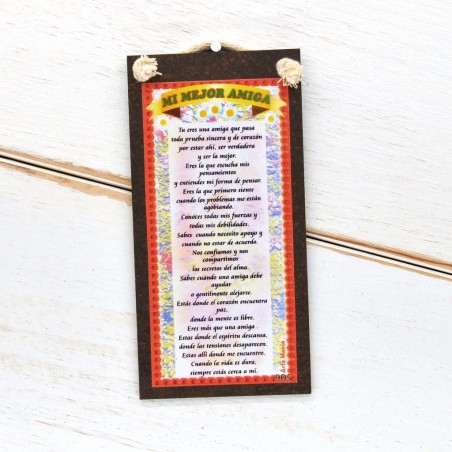 MI MEJOR AMIGA
Tu eres una amiga que pasa
toda prueba sincera y de corazón
por estar ahí, ser verdadera
y ser la mejor.
Eres la que escucha mis
pensamientos
y entiendes mi forma de pensar.
Eres la que primero siente
cuando los problemas me están
agobiando.
Conoces todas mis fuerzas y
todas mis debilidades.
Sabes cuando necesito apoyo y
cuando no estar de acuerdo.
Nos confiamos y nos
compartimos
los secretos del alma.
Sabes cuando una amiga debe
ayudar
o gentilmente alejarse.
Estás donde el corazón encuentra
paz,
donde la mente es libre.
Eres más que una amiga .
Estas donde el espíritu descansa,
donde las tensiones desaparecen.
Estas allí donde me encuentro.
Cuando la vida es dura,
siempre estás cerca a mí.